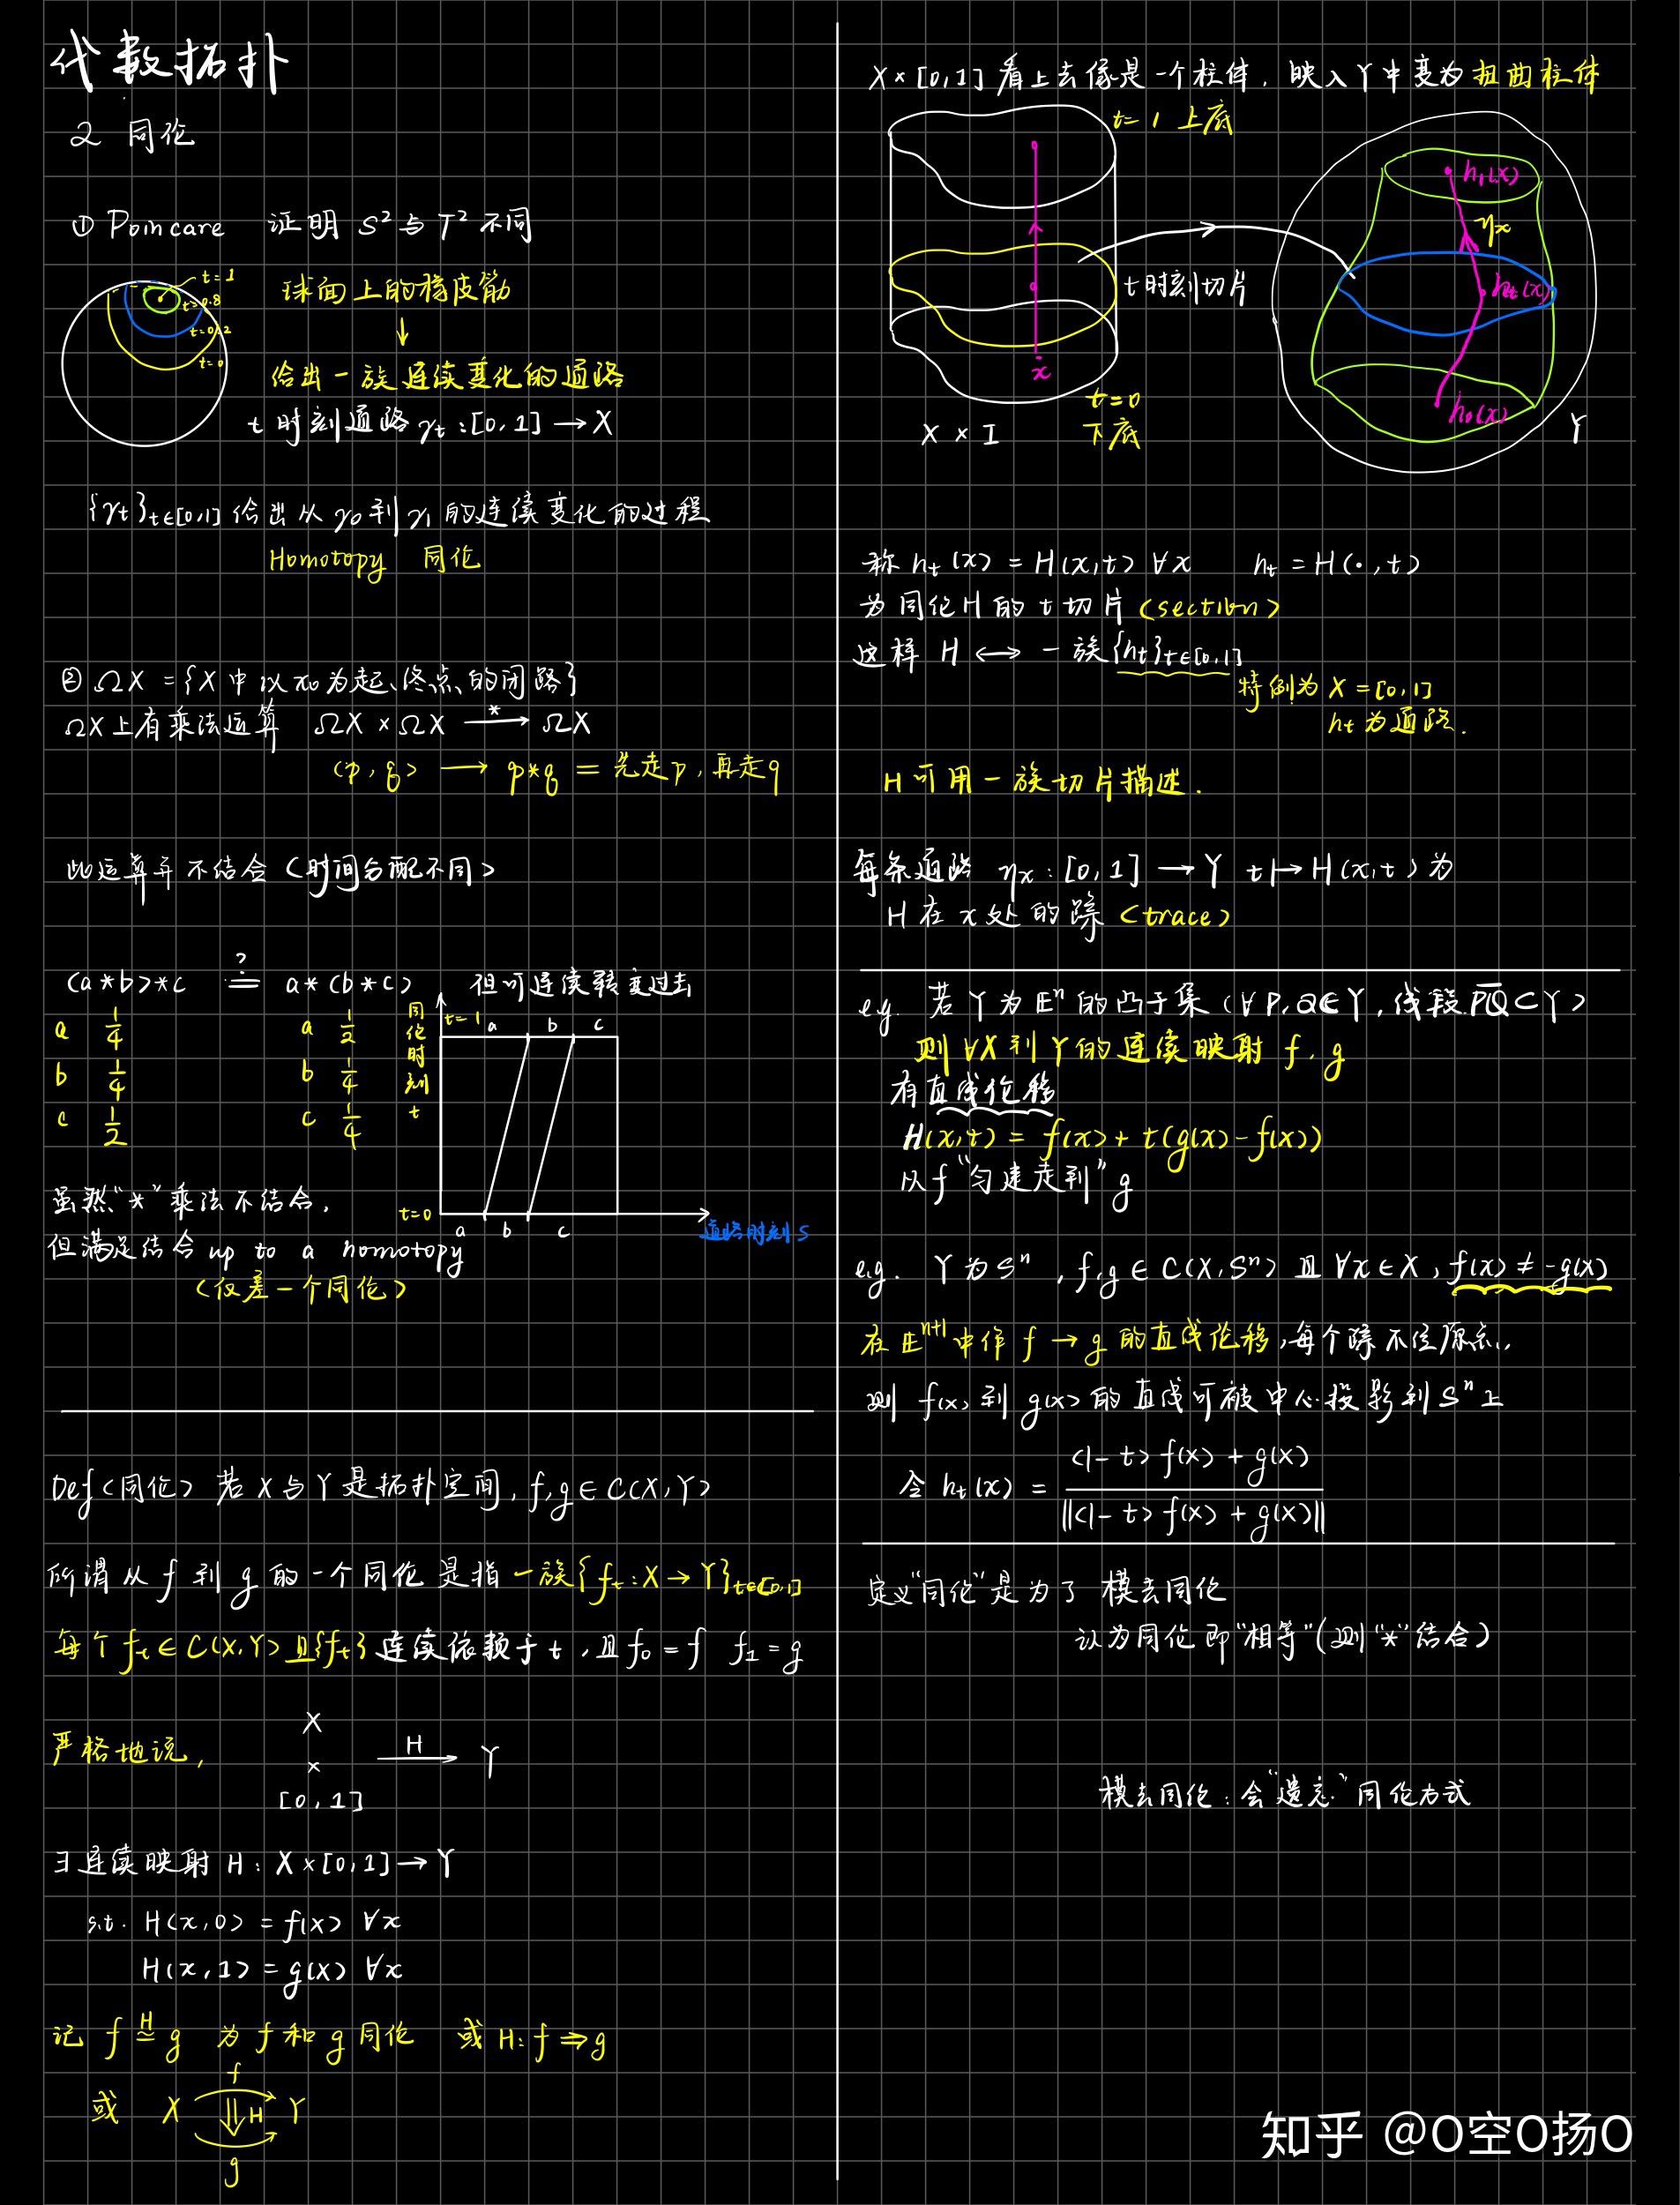 代数拓扑
2 同伦
① Poincare 证明 S² 与 T² 不同
t=1
t=0.8
t=0.2
t=0
球面上的橡皮筋
↓
给出一族连续变化的道路
t 时刻道路 γt : [0,1] → X
{γt}t∈[0,1] 给出从 γ0 到 γ1 的连续变化的过程
Homotopy 同伦
② ΩX = {X 中以 x0 为起、终点的闭路}
ΩX 上有乘法运算 ΩX × ΩX —*→ ΩX
(p, q) → p*q = 先走p, 再走q
此运算并不结合 (时间分配不同)
(a*b)*c ?= a*(b*c) 但可连续转变过去
a 1/4 a 1/2
b 1/4 b 1/4
c 1/2 c 1/4
同伦时刻 t
t=1 a b c
t=0 a b c
道路时刻 s
虽然"*"乘法不结合,
但满足结合 up to a homotopy
(仅差一个同伦)
Def (同伦) 若 X 与 Y 是拓扑空间, f,g ∈ C(X,Y)
所谓从 f 到 g 的一个同伦是指一族{ft : X → Y}t∈[0,1]
每个 ft ∈ C(X,Y) 且{ft} 连续依赖于 t, 且 f0 = f f1 = g
严格地说, X × [0,1] —H→ Y
∃连续映射 H : X × [0,1] → Y
s.t. H(x,0) = f(x) ∀x
H(x,1) = g(x) ∀x
记 f ≃H g 为 f 和 g 同伦 或 H: f ⇒ g
或 X Y
f
⇓H
g
X × [0,1] 看上去像是一个柱体, 映入 Y 中变为扭曲柱体
t=1 上底
t时刻切片
x
t=0
下底
X × I
h1(x)
ηx
ht(x)
h0(x)
Y
称 ht(x) = H(x,t) ∀x ht = H(·,t)
为同伦 H 的 t 切片 (section)
这样 H ↔ 一族{ht}t∈[0,1]
特例为 X = [0,1]
ht 为道路.
H 可用一族切片描述.
每条道路 ηx : [0,1] → Y t ↦ H(x,t) 为
H 在 x 处的踪 (trace)
e.g. 若 Y 为 Eⁿ 的凸子集 (∀P,Q∈Y, 线段 PQ ⊂ Y)
则 ∀X 到 Y 的连续映射 f, g
有直线伦移
H(x,t) = f(x) + t(g(x) - f(x))
从 f "匀速走到" g
e.g. Y 为 Sⁿ, f,g ∈ C(X, Sⁿ) 且 ∀x ∈ X, f(x) ≠ -g(x)
在 Eⁿ⁺¹ 中作 f → g 的直线伦移, 每个踪不经原点,
则 f(x) 到 g(x) 的直线可被中心投影到 Sⁿ 上
令 ht(x) = ((1-t) f(x) + g(x)) / ||(1-t) f(x) + g(x)||
定义"同伦"是为了 模去同伦
认为同伦即"相等" (则"*"结合)
模去同伦: 会"遗忘"同伦方式
知乎 @O空O扬O